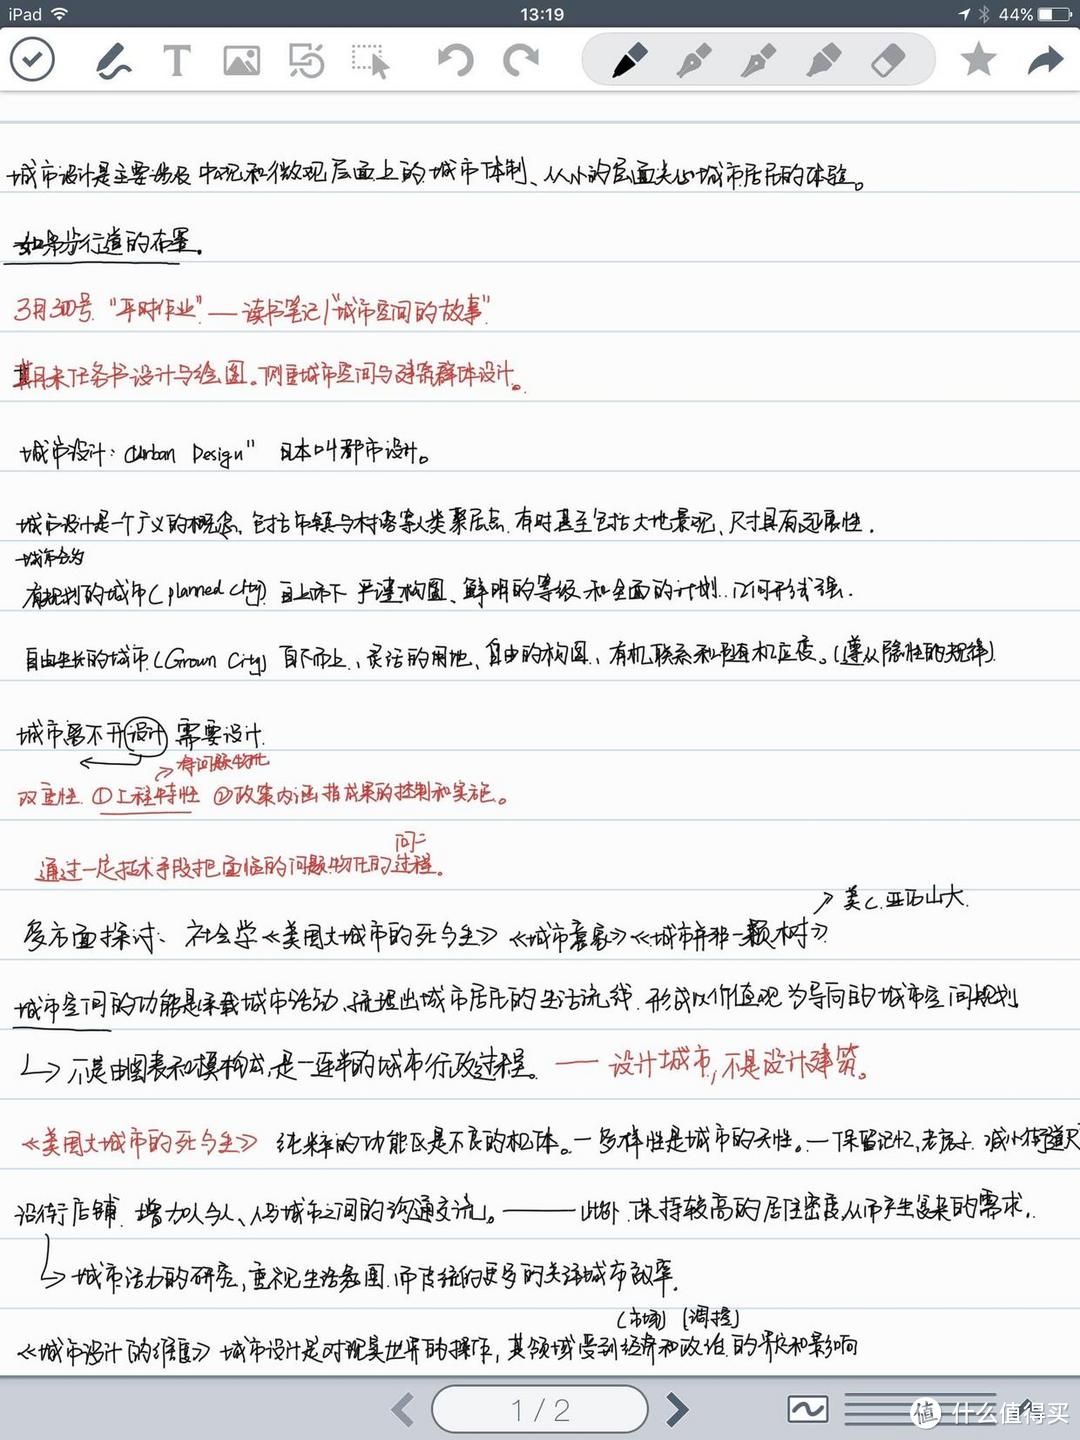 iPad 13:19 44%
城市设计是主要涉及中观和微观层面上的城市体制、从小的层面关心城市居民的体验。
如果步行道的布置。
3月30号."平时作业"—读书笔记/"城市空间的故事"
期末任务书设计与绘图。侧重城市空间与建筑群体设计。
城市设计:"Urban Design" 日本叫都市设计。
城市设计是一个广义的概念,包括市镇与村寨等人类聚居点.有时甚至包括大地景观、尺寸具有延展性.
城市分为
有规划的城市(planned city) 自上而下 严谨构图、鲜明的等级和全面的计划.几何形式强.
自由生长的城市.(Grown City) 自下而上、灵活的用地、自由的构图、有机联系和随机应变。(遵从隐性的规律)
城市离不开设计 需要设计.
将问题物化
双重性.①工程特性 ②政策内涵指成果的控制和实施。
通过一定技术手段把面临的问题物化的过程。
美C.亚历山大.
多方面探讨、社会学《美国大城市的死与生》《城市意象》《城市并非一颗树》
城市空间的功能是承载城市活动,梳理出城市居民的生活流线.形成以价值观为导向的城市空间规划
不是由图表和模构成,是一连串的城市行政过程。——设计城市,不是设计建筑。
《美国大城市的死与生》纯粹的功能区是不良的机体。—多样性是城市的天性。—保留记忆,老房子.减小街道尺
沿街店铺.增加人与人、人与城市之间的沟通交流。——此外.保持较高的居住密度,从而产生复杂的需求.
城市活力的研究,重视生活意图.而传统的更多的关注城市效率.
(市场)(调控)
《城市设计的维度》城市设计是对现实世界的操作,其领域受到经济和政治的界定和影响
1 / 2
值 什么值得买